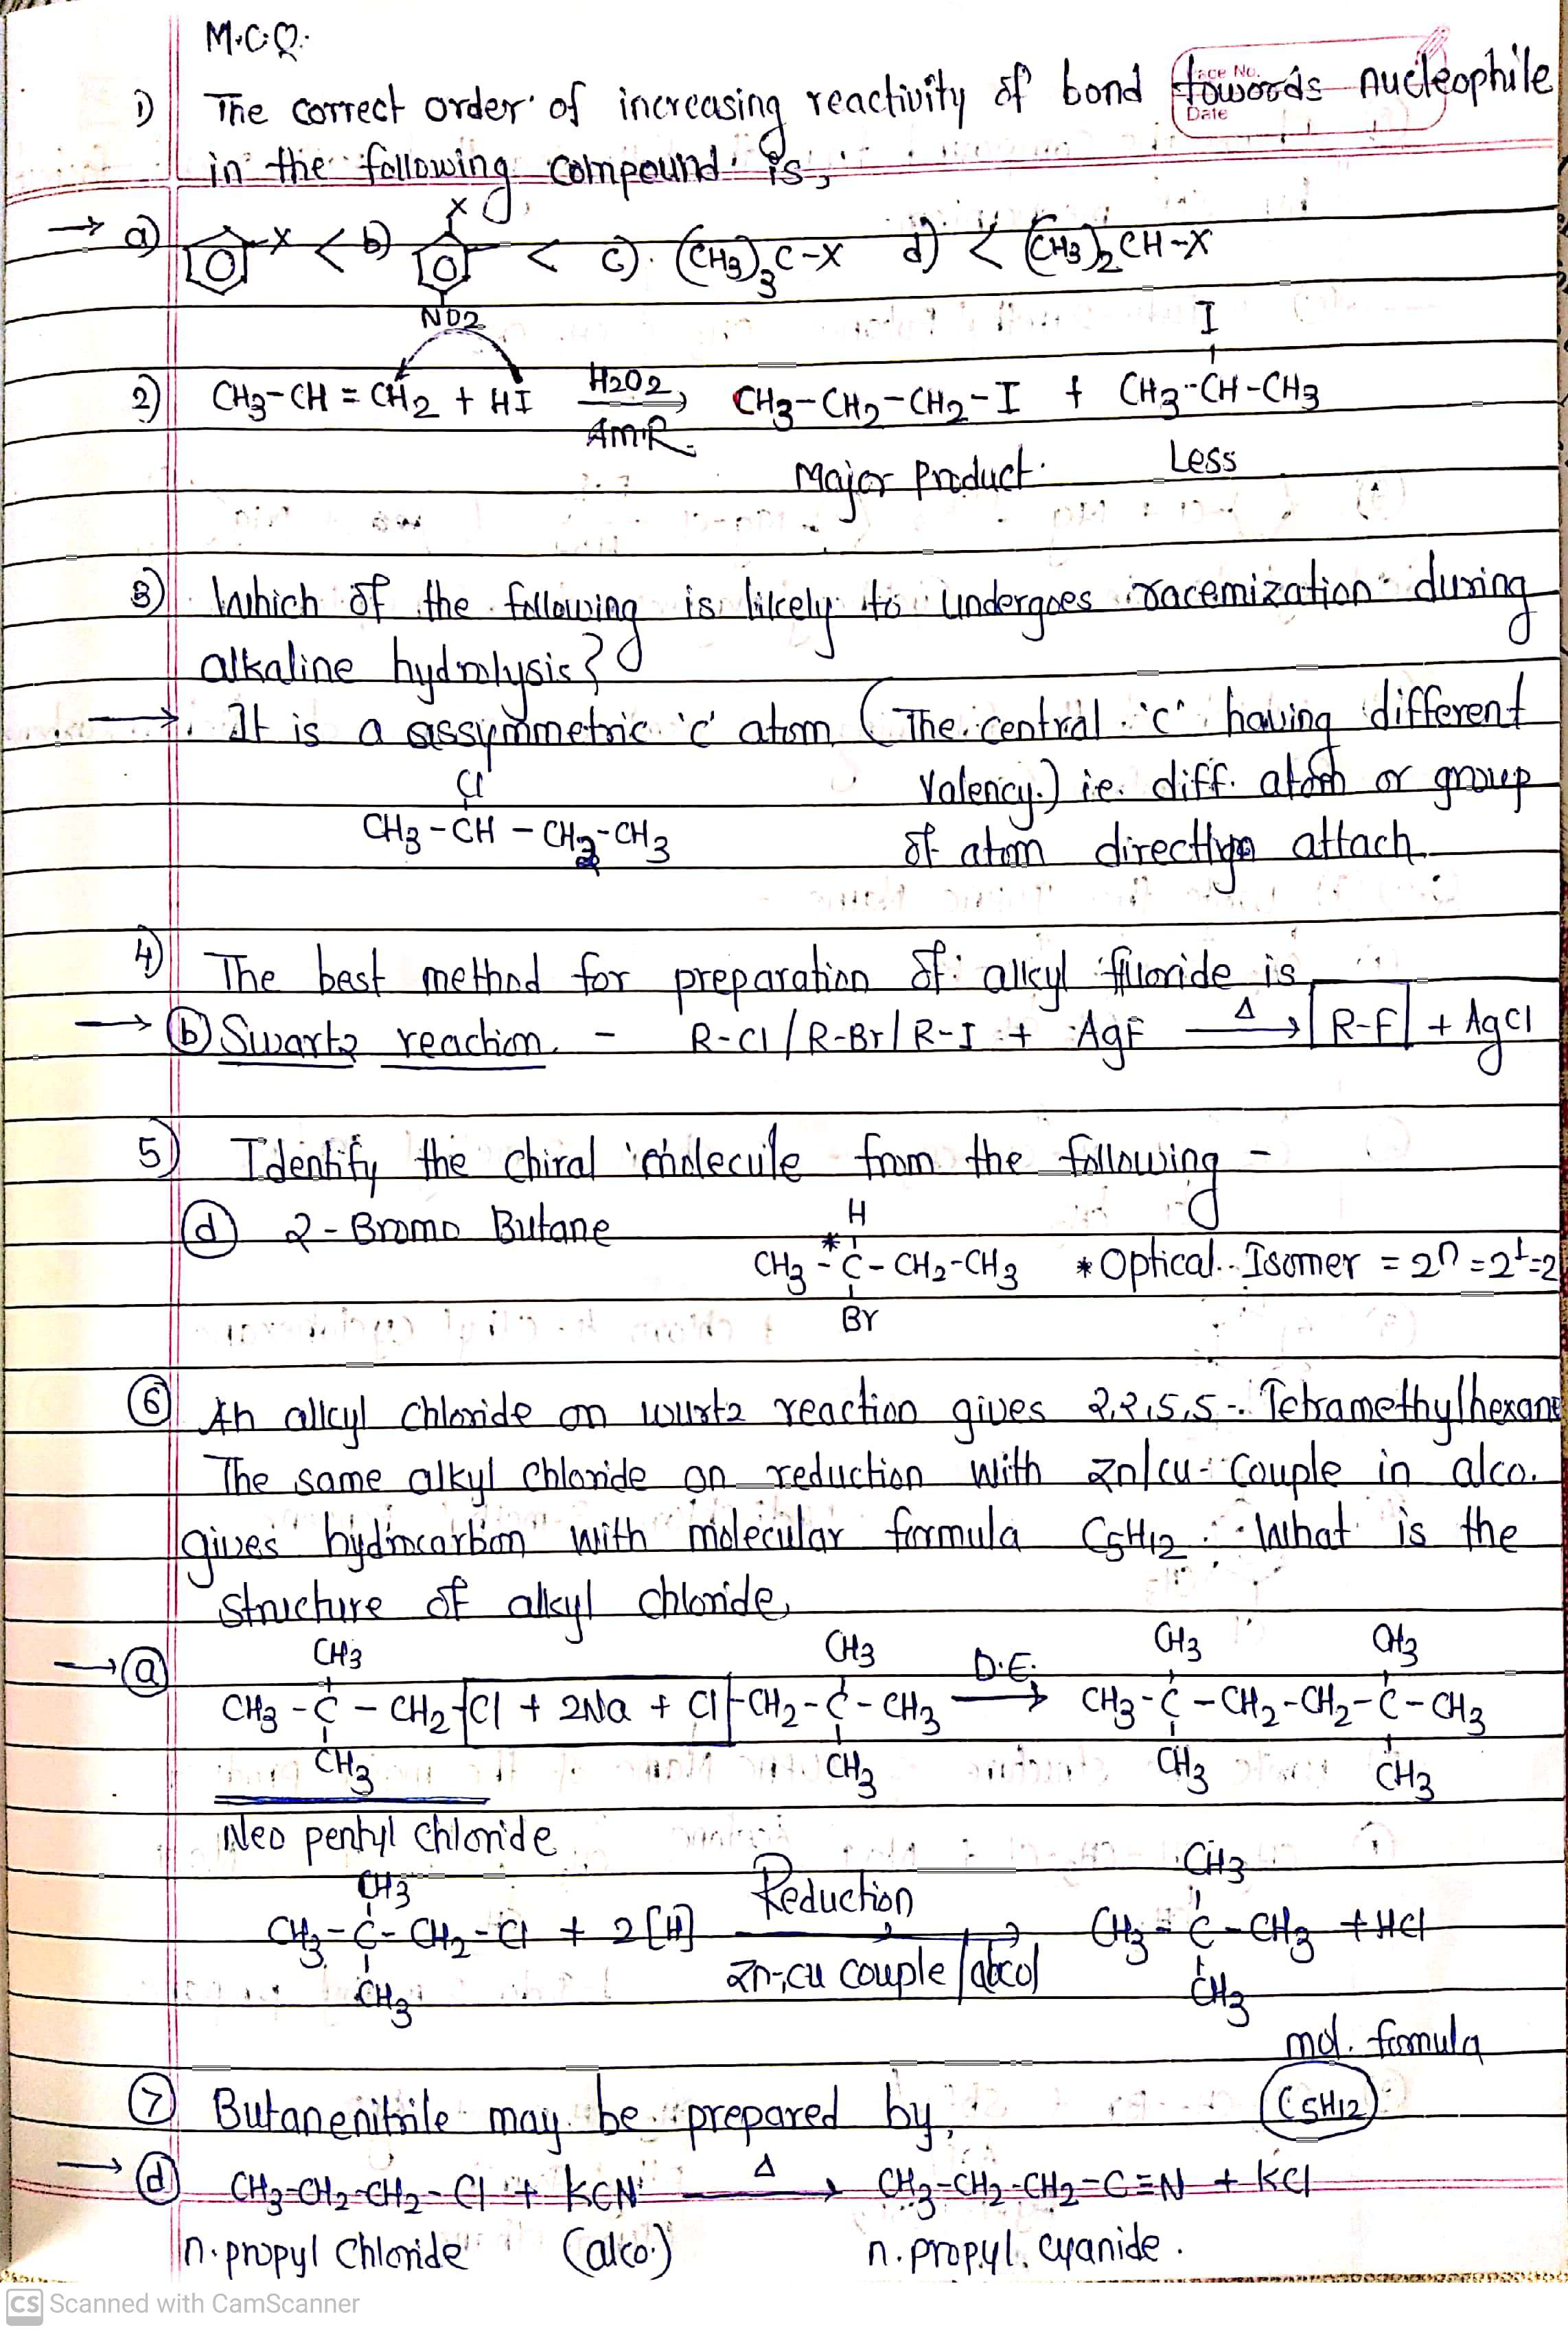 M.C.Q.
Page No.
Date
1) The correct order of increasing reactivity of bond towords nucleophile
in the following compound is,
X
→ a) X < b) < c). (CH3)3C-X d) < (CH3)2CH-X
NO2
I
2) CH3-CH = CH2 + HI H2O2 CH3-CH2-CH2-I + CH3-CH-CH3
AMR.
Major Product. Less
3) Which of the following is likely to undergoes racemization during
alkaline hydrolysis?
→ It is a assymmetric 'c' atom (The central 'c' having different
Cl valency.) ie. diff. atom or group
CH3-CH-CH2-CH3 of atom directly attach
4) The best method for preparation of alkyl fluoride is
→ b) Swartz reaction. - R-Cl / R-Br / R-I + AgF Δ→ R-F + AgCl
5) Identify the chiral molecule from the following -
H
d) 2-Bromo Butane
CH3-*C-CH2-CH3 * Optical. Isomer = 2n = 2¹=2
Br
6) An alkyl chloride on wurtz reaction gives 2,2,5,5-Tetramethylhexane
The same alkyl chloride on reduction with zn/cu-couple in alco.
gives hydrocarbon with molecular formula C5H12. What is the
structure of alkyl chloride
CH3 CH3 CH3 CH3
→ a) CH3-C-CH2-Cl + 2Na + Cl-CH2-C-CH3 D.E.→ CH3-C-CH2-CH2-C-CH3
CH3 CH3 CH3 CH3
Neo pentyl chloride
CH3 CH3
CH3-C-CH2-Cl + 2[H] Reduction→ CH3-C-CH3 + HCl
zn-cu couple/alcol
CH3 CH3
mol. formula
C5H12
7) Butanenitrile may be prepared by,
→ d) CH3-CH2-CH2-Cl + KCN Δ→ CH3-CH2-CH2-C≡N + KCl
n.propyl Chloride (alco.) n.propyl. cyanide.
CS Scanned with CamScanner